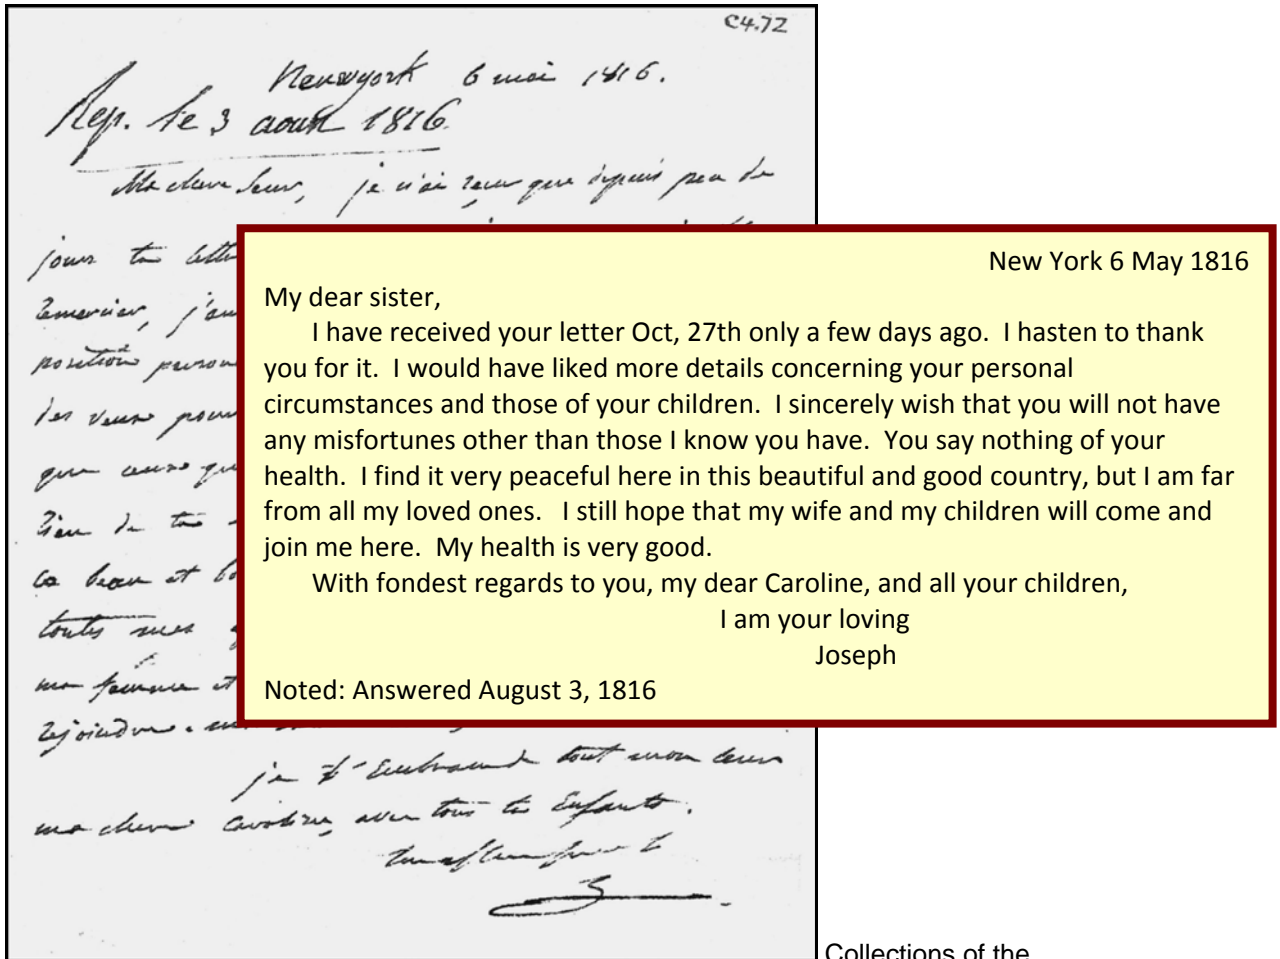 C4.72
Newyork 6 mai 1816.
Rep. le 3 aout 1816.
Ma chere Soeur, je n'ai reçu que depuis peu de
jours ta lettre
remercier, j'au
position person
des veux pour
que ceux qu
rien de ta
ce beau et bo
toutes mes
ma femme et
rejoindre.
je t'Embrasse de tout mon coeur
ma chere Caroline, avec tous tes Enfants.
New York 6 May 1816
My dear sister,
I have received your letter Oct, 27th only a few days ago. I hasten to thank
you for it. I would have liked more details concerning your personal
circumstances and those of your children. I sincerely wish that you will not have
any misfortunes other than those I know you have. You say nothing of your
health. I find it very peaceful here in this beautiful and good country, but I am far
from all my loved ones. I still hope that my wife and my children will come and
join me here. My health is very good.
With fondest regards to you, my dear Caroline, and all your children,
I am your loving
Joseph
Noted: Answered August 3, 1816
Collections of the